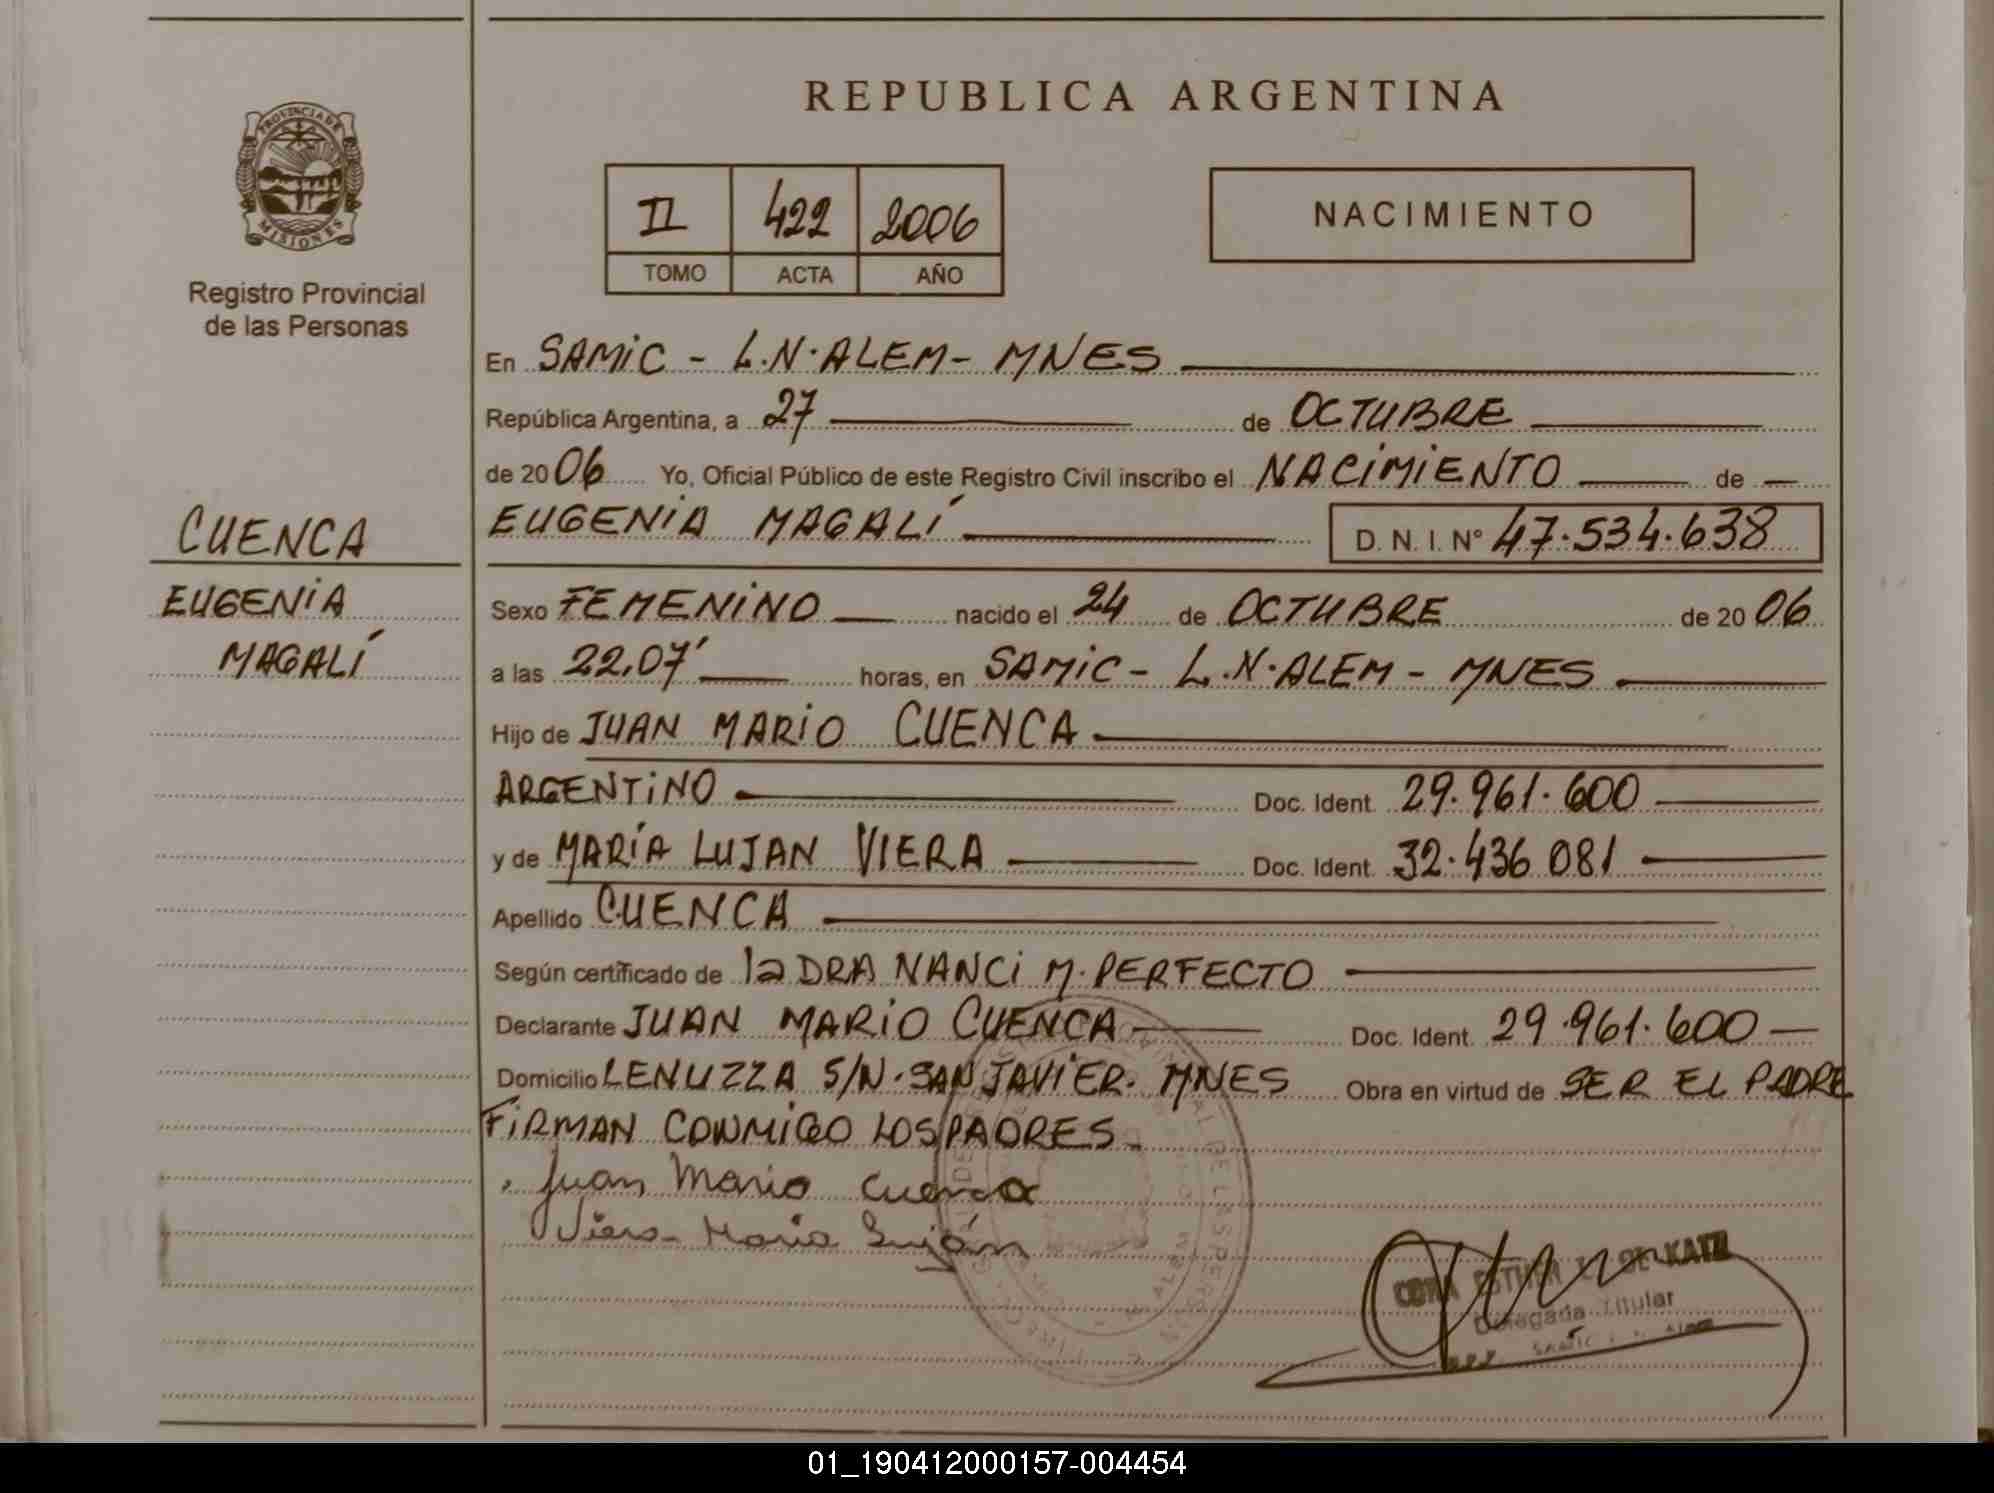 REPUBLICA ARGENTINA
PROVINCIA DE
MISIONES
Registro Provincial
de las Personas
II 422 2006
TOMO ACTA AÑO
NACIMIENTO
En SAMIC - L.N.ALEM - MNES
República Argentina, a 27 de OCTUBRE
de 2006 Yo, Oficial Público de este Registro Civil inscribo el NACIMIENTO de
CUENCA
EUGENIA
MAGALÍ
EUGENIA MAGALÍ D. N. I. N° 47.534.638
Sexo FEMENINO nacido el 24 de OCTUBRE de 2006
a las 22,07' horas, en SAMIC - L.N.ALEM - MNES
Hijo de JUAN MARIO CUENCA
ARGENTINO Doc. Ident. 29.961.600
y de MARÍA LUJAN VIERA Doc. Ident. 32.436 081
Apellido CUENCA
Según certificado de la DRA NANCI M. PERFECTO
Declarante JUAN MARIO CUENCA Doc. Ident. 29.961.600
Domicilio LENUZZA S/N. SAN JAVIER. MNES Obra en virtud de SER EL PADRE
FIRMAN CONMIGO LOS PADRES
Juan Mario Cuenca
Viera Maria Luján
ESTHER DE KATZ
Delegada Titular
01_190412000157-004454